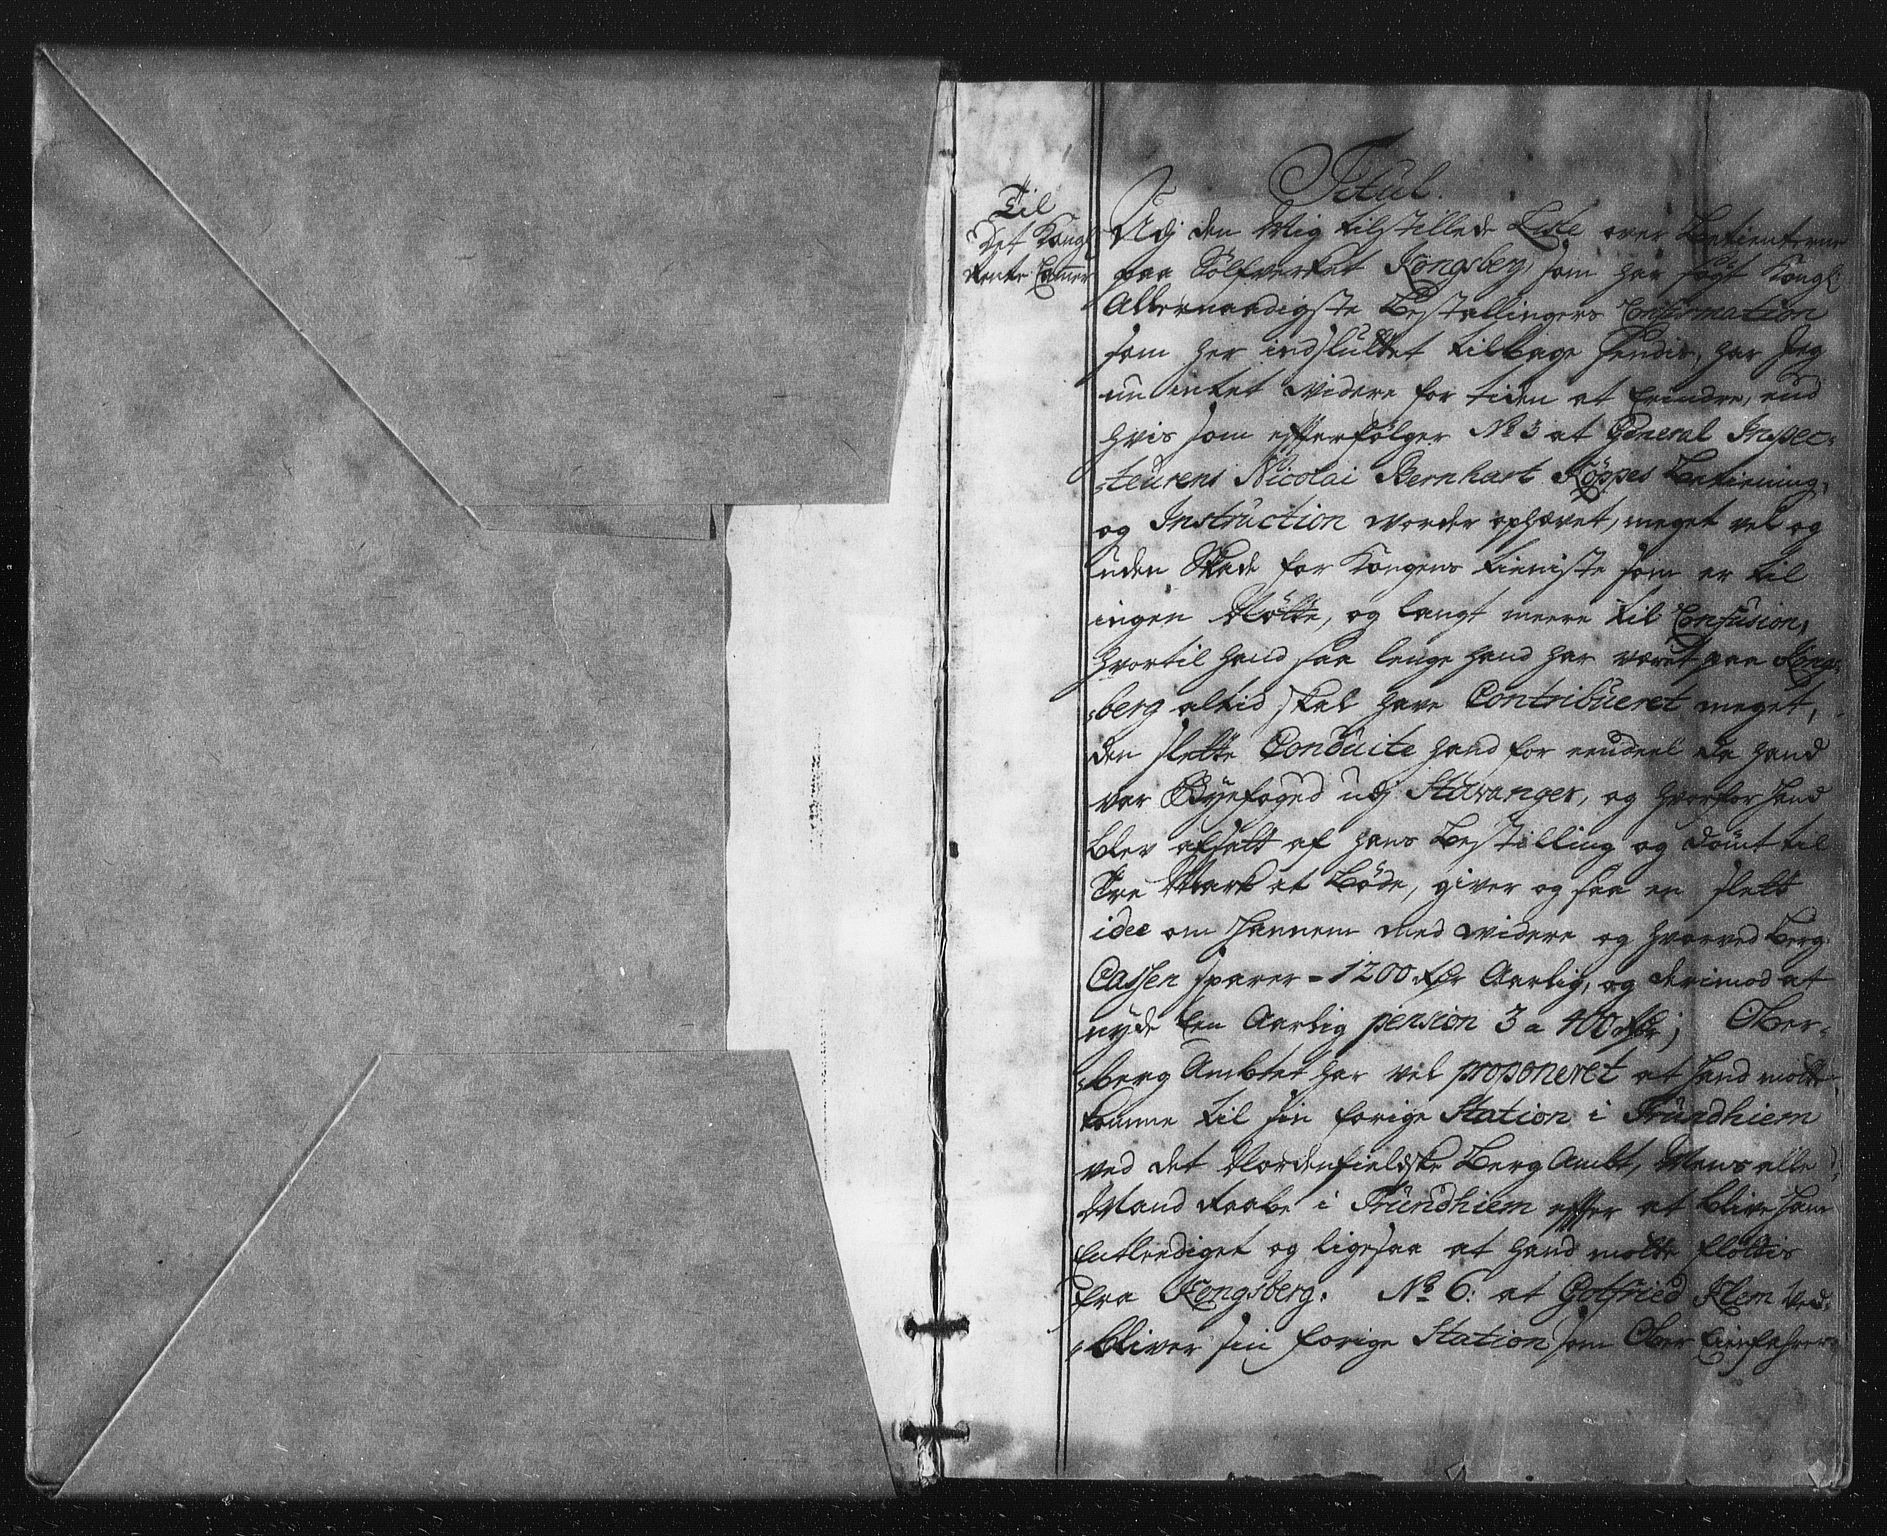 Til
Det Kongl
Rente Cammer
Titul.
Udj den Mig tilstillede Liste over Betienterne
paa Sölfverket Kongsberg som har søgt Kongl
Allernaadigste Bestallingers Confirmation
som her indsluttet tilbage sendis, har Jeg
nu intet widere for tiden at Erindre, end
hvis som efterfølger No 3 at General Inspec:
:teurens Nicolai Bernhart Köppes Betiening,
og Instruction worder ophævet, meget vel og
uden Skade for Kongens tieniste som er til
ingen Nötte, og langt meere til Confusion,
hvortil hand saa lenge hand har været paa Kongs:
:berg altid skal have Contribueret meget,
den slette Conduite hand for eendeel da hand
var Byefoged udj Stavanger, og hvorfor hand
blev afsatt af hans Bestilling og dömt til
Tre Mark at Bøde, giver og saa en slett
idee om hannem med widere og hvorved Berg:
Cassen sparer - 1200 Rdr Aarlig, og derimod at
nyde Een Aarlig pension 3 a 400 Rdr; Ober:
:berg Ambtet har vel proponeret at hand motte
komme til sin forige Station i Trundhiem
ved det Nordenfieldske Berg Ambt, Mens alle
Mand Raabe i Trundhiem effter at blive ham
Entlendiget og ligesaa at hand motte flöttis
fra Kongsberg. No 6: at Gotfried Klem ved:
:bliver sin forige Station som Ober